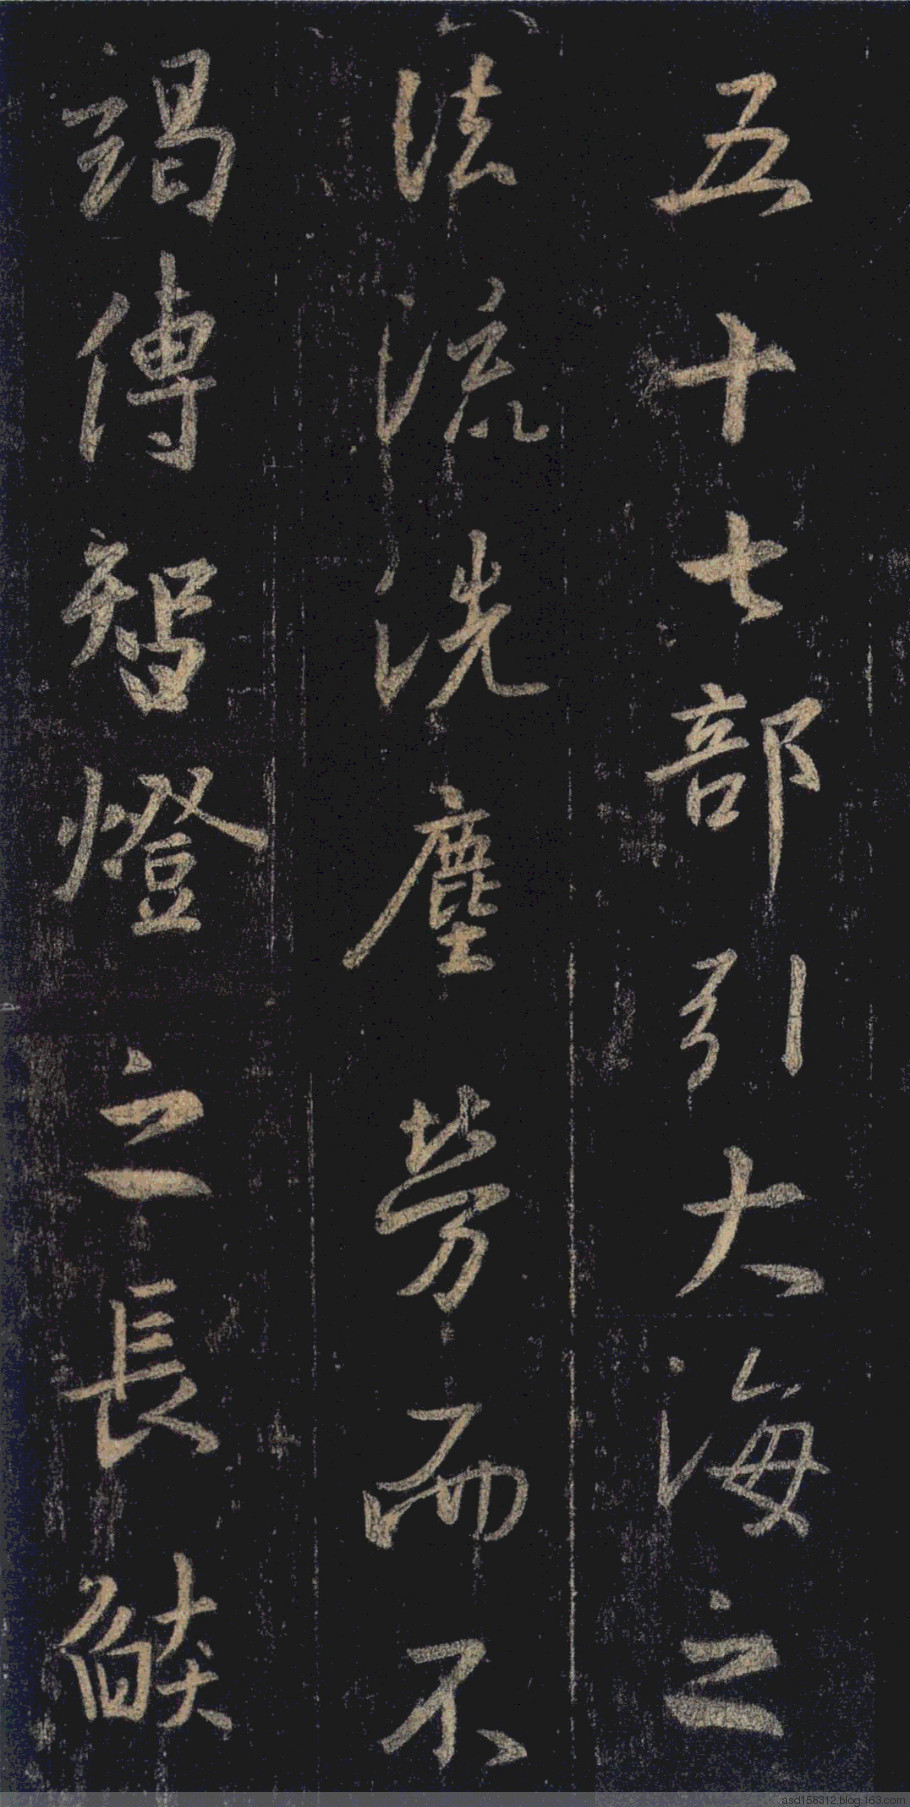 五十七部引大海之
法流洗塵勞而不
竭傳智燈之長𦦨
asd158312.blog.163.com